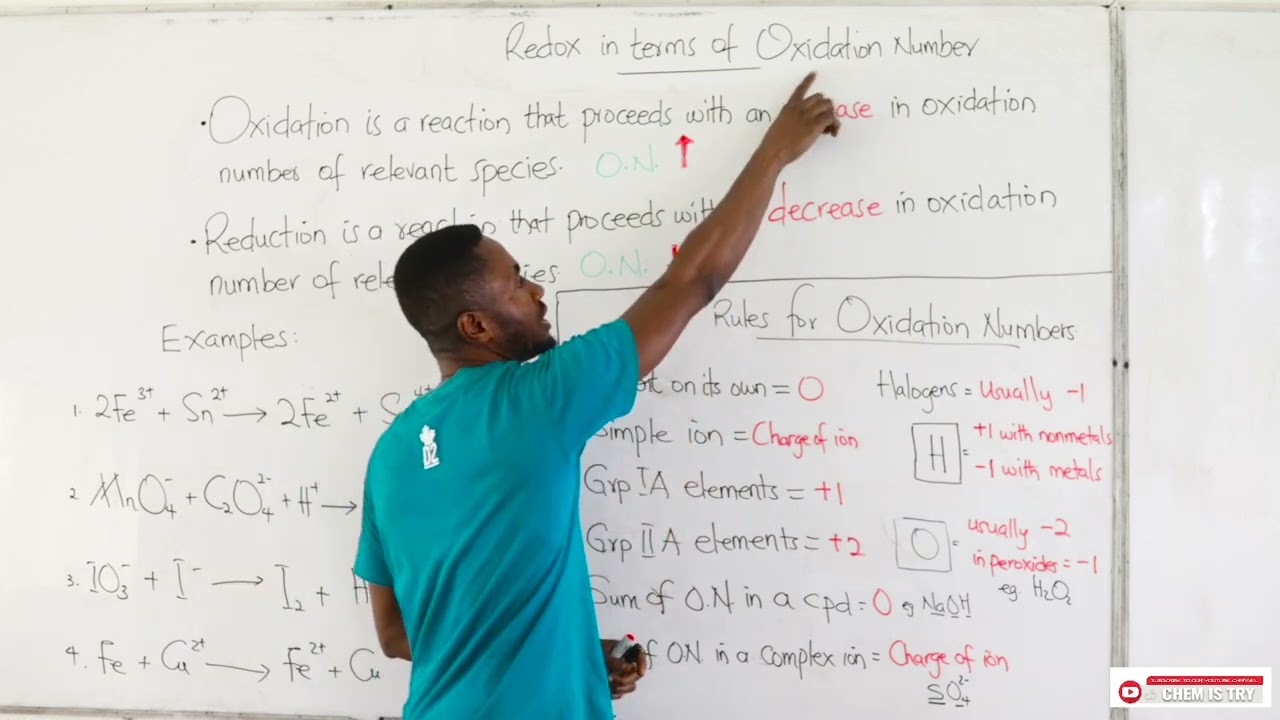 Redox in terms of Oxidation Number
• Oxidation is a reaction that proceeds with an ease in oxidation
number of relevant species. O.N. ↑
• Reduction is a that proceeds decrease in oxidation
number of O.N.
Examples:
1. 2Fe³⁺ + Sn²⁺ → 2Fe²⁺ + S
2 MnO₄⁻ + C₂O₄²⁻ + H⁺ →
3. IO₃⁻ + I⁻ → I₂ + H
4. Fe + Cu²⁺ → Fe²⁺ + Cu
Rules for Oxidation Numbers
on its own = 0
Simple ion = Charge of ion
Grp IA elements = +1
Grp IIA elements = +2
Sum of O.N. in a cpd = 0 eg NaOH
of ON. in a complex ion = Charge of ion
SO₄²⁻
Halogens = usually -1
H = +1 with nonmetals
-1 with metals
O = usually -2
in peroxides = -1
eg. H₂O₂
02
SUBSCRIBE TO OUR YOUTUBE CHANNEL
CHEM IS TRY